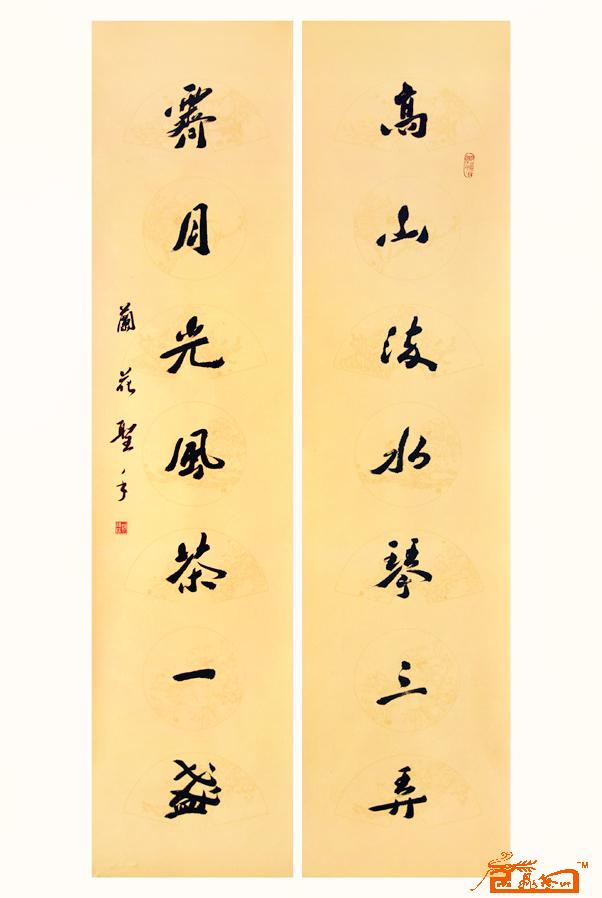 高山流水琴三弄
霽月光風茶一盞
蘭花聖手